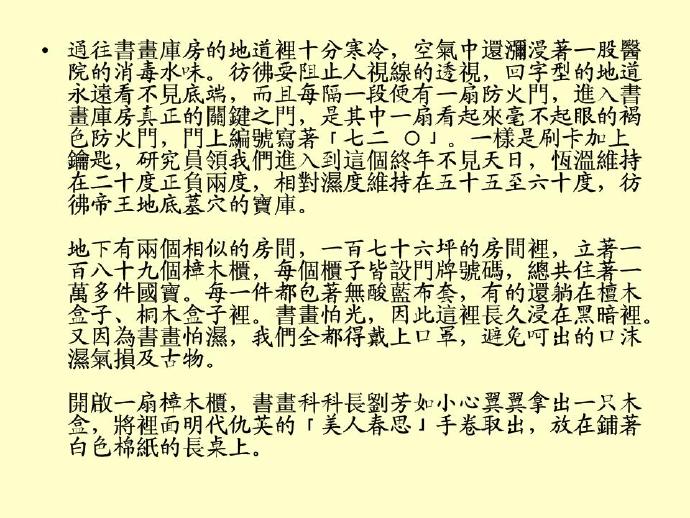 • 通往書畫庫房的地道裡十分寒冷，空氣中還瀰漫著一股醫
院的消毒水味。彷彿要阻止人視線的透視，回字型的地道
永遠看不見底端，而且每隔一段便有一扇防火門，進入書
畫庫房真正的關鍵之門，是其中一扇看起來毫不起眼的褐
色防火門，門上編號寫著「七二 ○」。一樣是刷卡加上
鑰匙，研究員領我們進入到這個終年不見天日，恆溫維持
在二十度正負兩度，相對濕度維持在五十五至六十度，彷
彿帝王地底墓穴的寶庫。
地下有兩個相似的房間，一百七十六坪的房間裡，立著一
百八十九個樟木櫃，每個櫃子皆設門牌號碼，總共住著一
萬多件國寶。每一件都包著無酸藍布套，有的還躺在檀木
盒子、桐木盒子裡。書畫怕光，因此這裡長久浸在黑暗裡。
又因為書畫怕濕，我們全都得戴上口罩，避免呵出的口沫
濕氣損及古物。
開啟一扇樟木櫃，書畫科科長劉芳如小心翼翼拿出一只木
盒，將裡面明代仇英的「美人春思」手卷取出，放在鋪著
白色棉紙的長桌上。